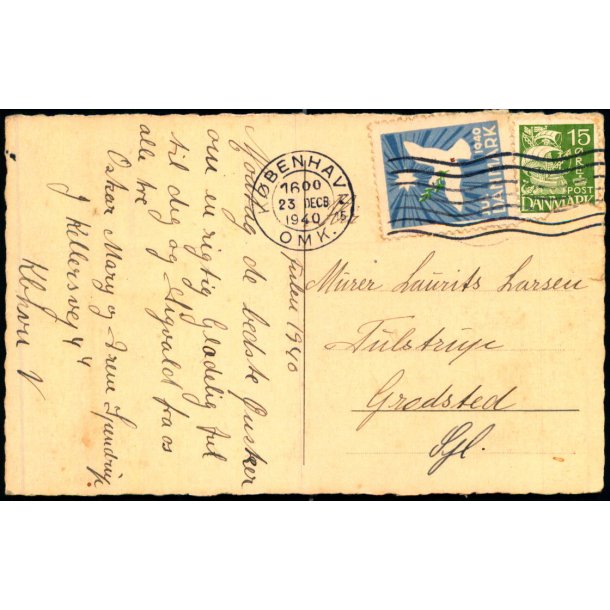 Julen 1940
Modtag de bedste Ønsker
om en rigtig Glædelig Jul
til dig og Sigvaldt fra os
alle tre
Oskar Mary og Irene
J Kellersvej 44
Kbhvn V
KØBENHAVN
1600
23 DECB
1940
OMK.
JUL 1940
DANMARK
15
ØRE
POST
DANMARK
Hr
Mürer Laurits Larsen
Tülstrup
Gredsted
Sjl.